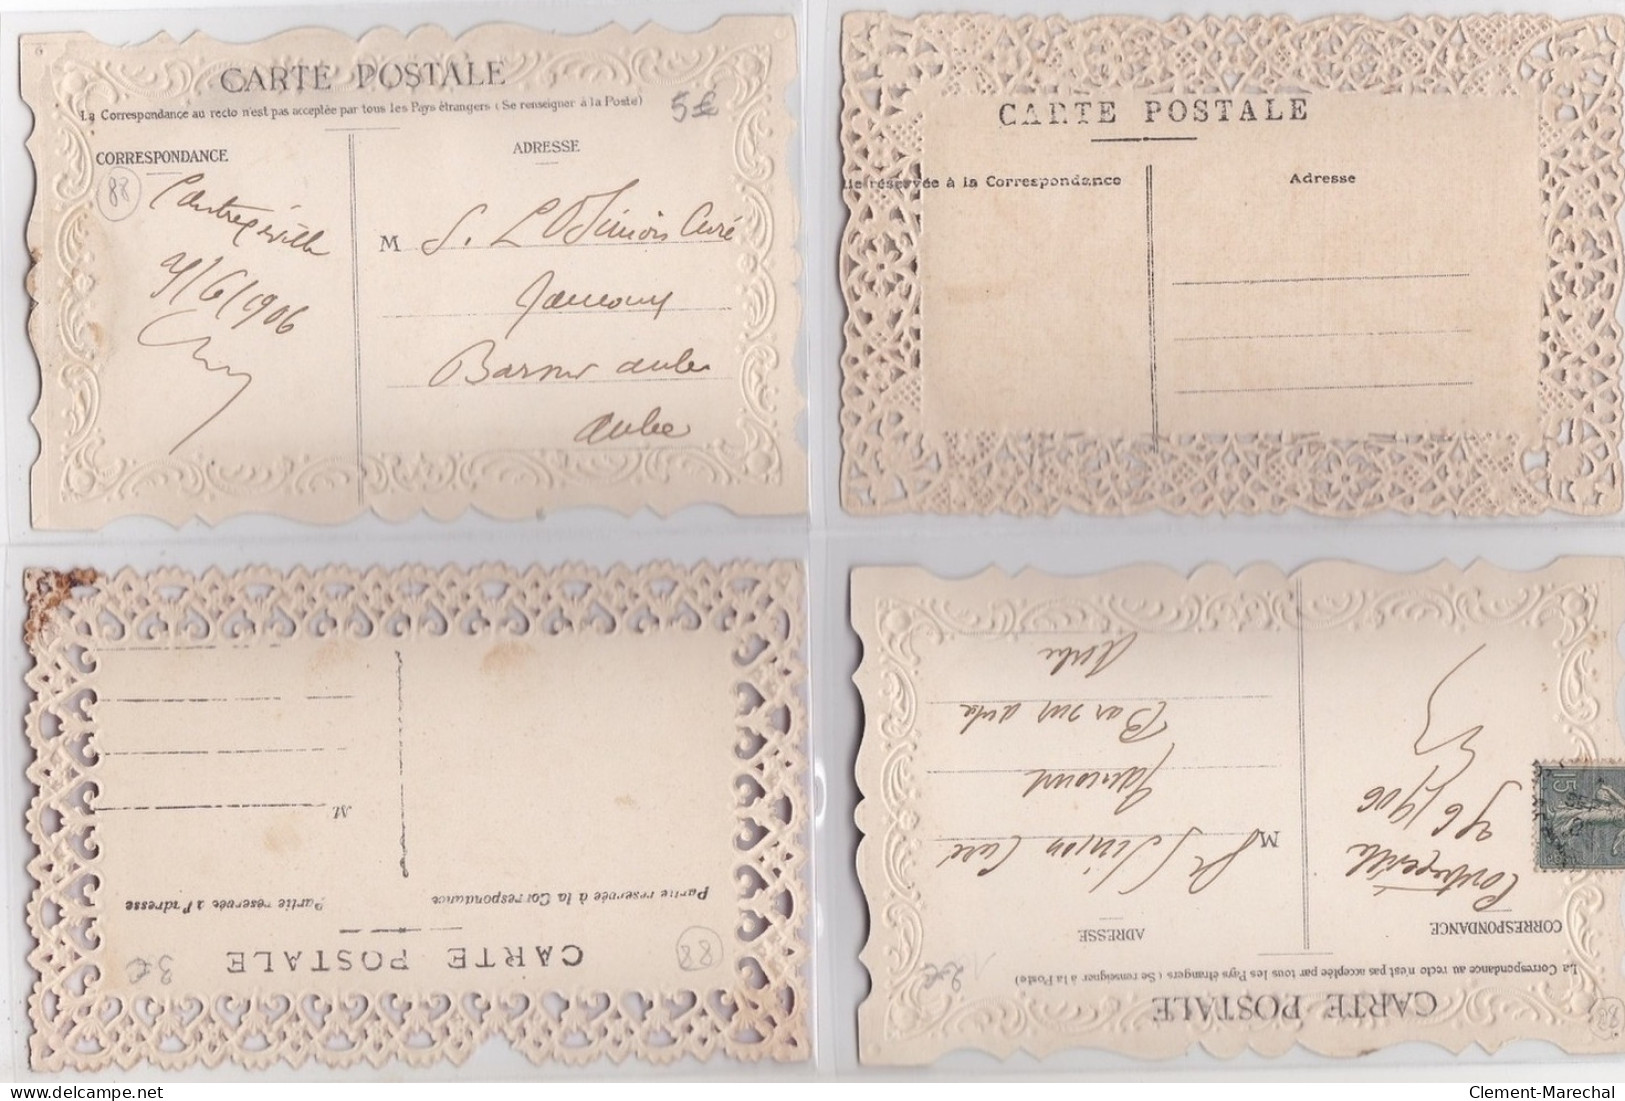 CARTE POSTALE
La Correspondance au recto n'est pas acceptée par tous les Pays étrangers (Se renseigner à la Poste)
5€
CORRESPONDANCE
ADRESSE
88
Contrexéville
9/6/1906
M S. L Simon Curé
Jaucourt
Barsur aube
aube
CARTE POSTALE
réservée à la Correspondance
Adresse
CARTE POSTALE
3€
88
Partie réservée à la Correspondance
Partie réservée à l'adresse
M
CARTE POSTALE
La Correspondance au recto n'est pas acceptée par tous les Pays étrangers (Se renseigner à la Poste)
88
CORRESPONDANCE
ADRESSE
Contrexéville
9 6/1906
M Simon Curé
Jaucourt
Bar sur aube
Aube
15
Clement-Marechal